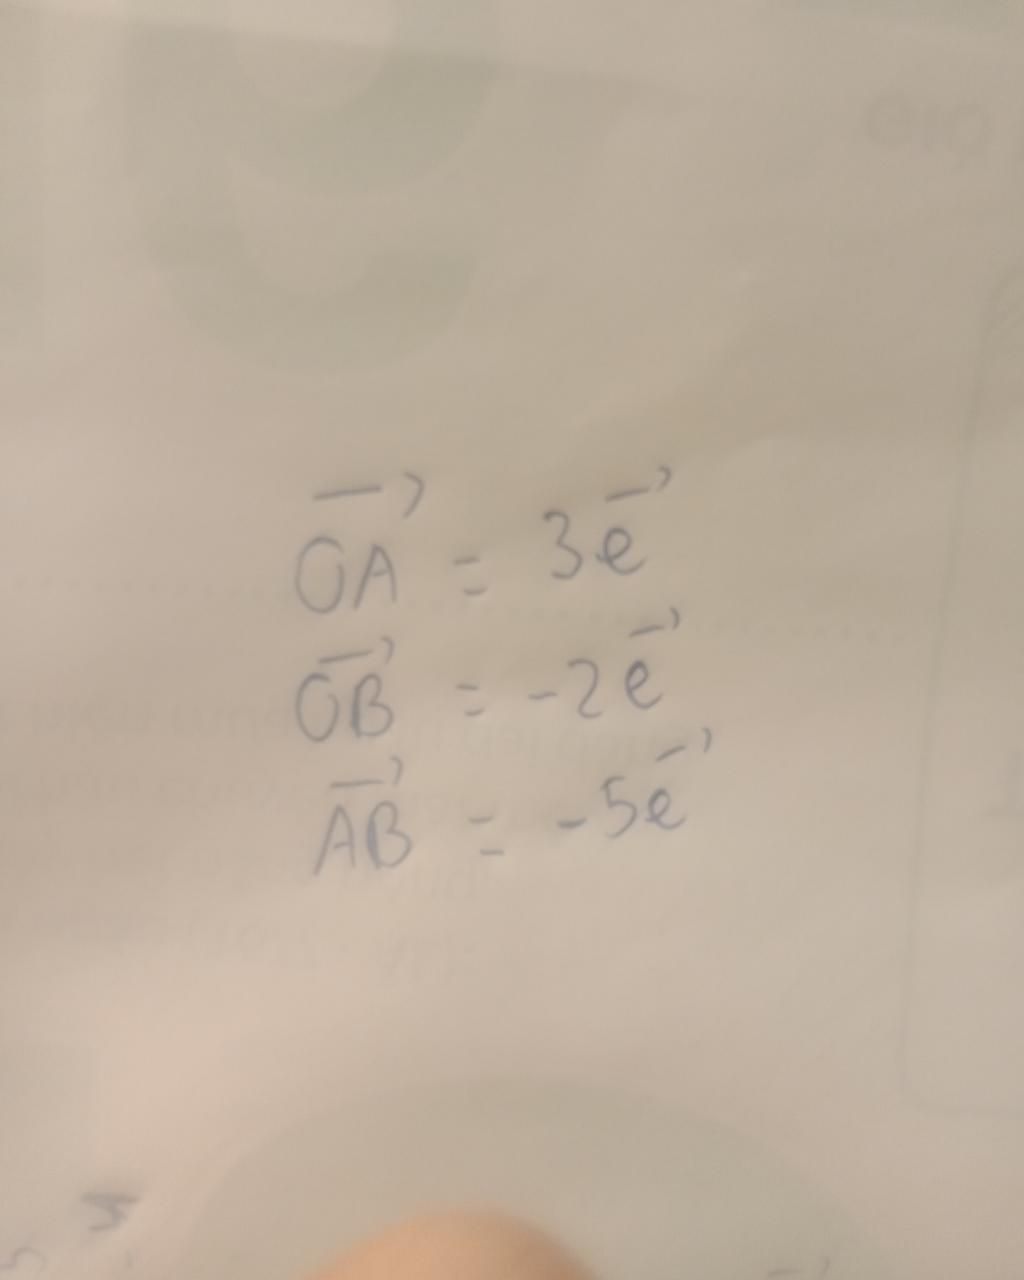 $\overrightarrow{OA} = 3\vec{e}$
$\overrightarrow{OB} = -2\vec{e}$
$\overrightarrow{AB} = -5\vec{e}$